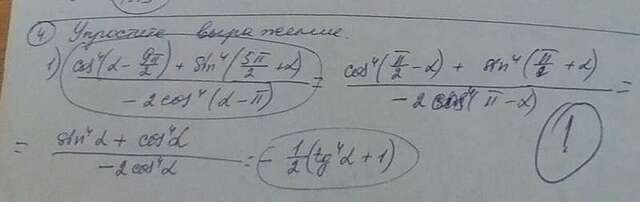 ④ Упростите выражение.
1) (cos⁴(α - 9π/2) + sin⁴(5π/2 + α)) / (-2cos⁴(α - π)) = (cos⁴(π/2 - α) + sin⁴(π/2 + α)) / (-2cos⁴(π - α)) =
= (sin⁴α + cos⁴α) / (-2cos⁴α) = - 1/2 (tg⁴α + 1)
1